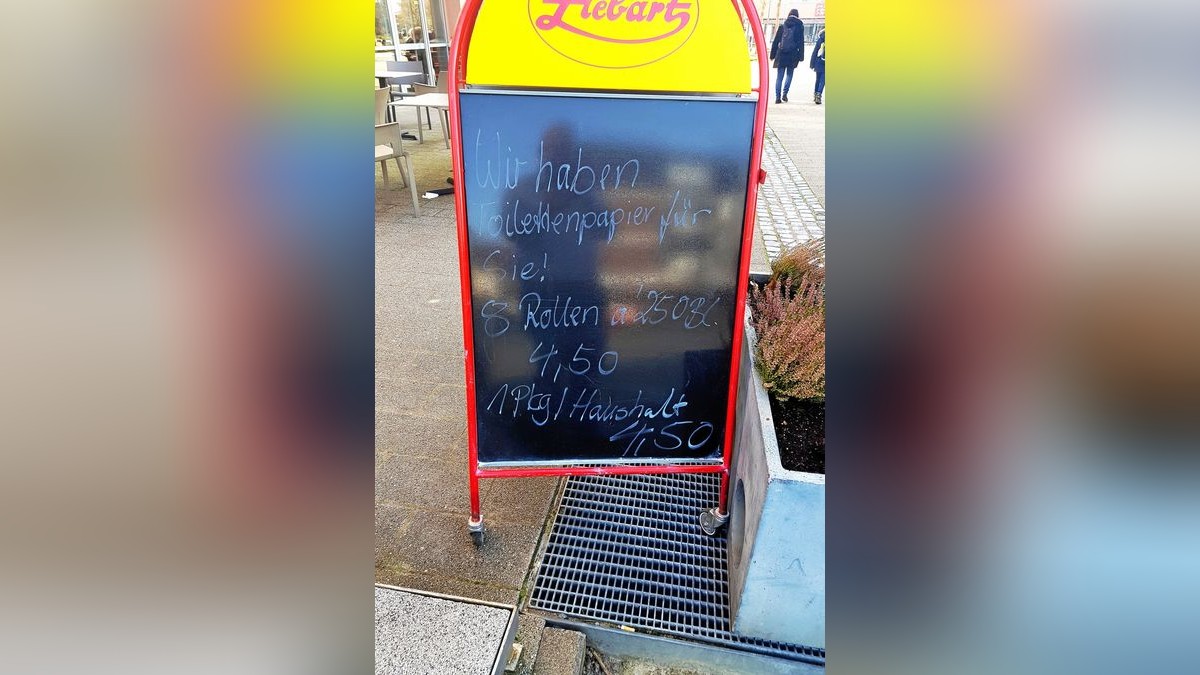 Ziebart
Wir haben
Toilettenpapier für
Sie!
8 Rollen a' 250 Bl.
4,50
1 Pkg / Haushalt
4,50